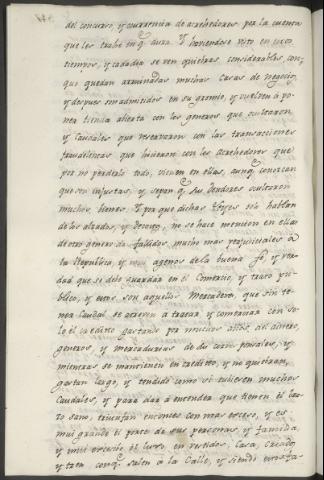 del concurso, y ocurrencia de acrehedores por la cuenta
que les trahe inq. dura. Y haviendose visto en estos
tiempos, y cada dia se ven quiebras considerables, con
que quedan arruinadas muchas Casas de negocio,
y despues son admitidos en su gremio, y vuelven á po-
ner tienda abierta con los generos que ocultaron
y Caudales que reservaron con las transacciones
fraudulentas que hicieron con los Acrehedores que
por no perderlo todo, vienen en ellas, aunq. conozcan
que son injustas, y sepan q. sus Deudores ocultaron
muchos bienes. Y por que dichas Leyes solo hablan
de los alzados, y Decoyo, no se hace mencion en ellas
de otro genero de fallidos, mucho mas perjudiciales á
la Republica, y mui agenos de la buena fé, y ver-
dad que se debe guardar en el Comercio, y trato pu-
blico, y estos son aquellos Mercaderes, que sin te-
ner Caudal se atreven á tratar, y comerciar con so-
lo el credito gastando por muchos años, del dinero,
generos, y mercadurias de sus corresponsales, y
mientras se mantienen en credito, y no quiebran,
gastan largo, y tendido como si tubieran muchos
Caudales, y para dar á entender que tienen el bra-
zo sano, triunfan entonces con mas exceso, y es
mui grande el porte de sus personas, y familia,
y mui excesivo el luxo, en vestidos, Casa, Criados
y tren conq. salen á la Calle, y siendo